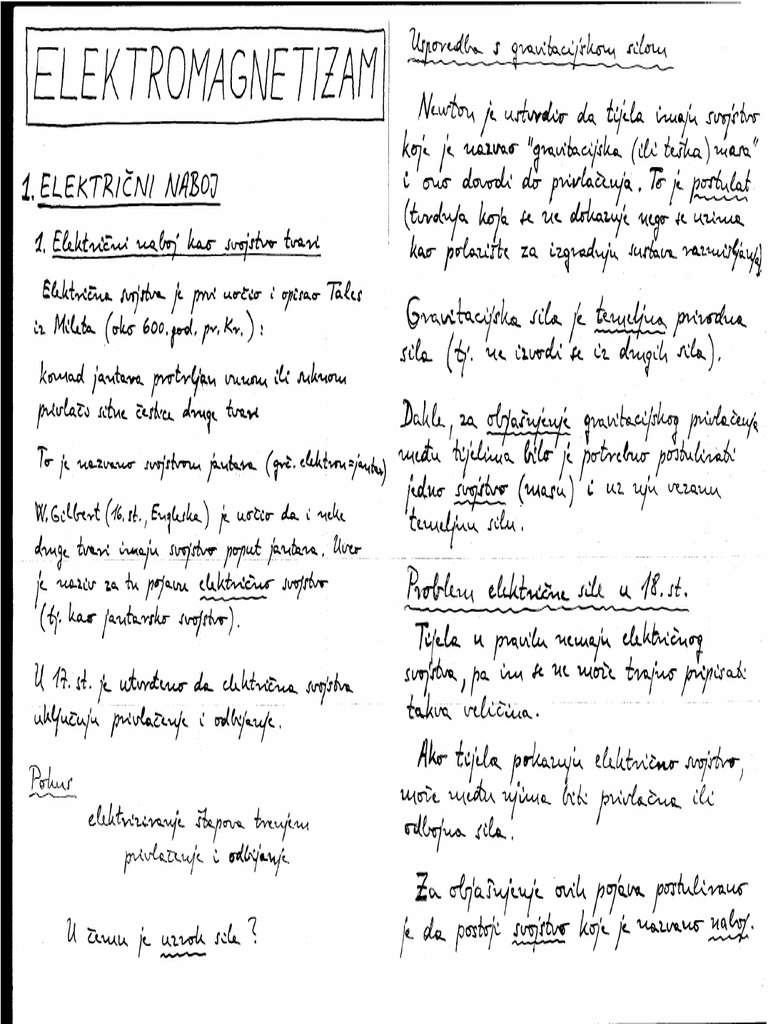 ELEKTROMAGNETIZAM
1. ELEKTRIČNI NABOJ
1. Električni naboj kao svojstvo tvari
Električna svojstva je prvi uočio i opisao Tales
iz Mileta (oko 600. god. pr. Kr.) :
komad jantara protrljan vunom ili suknom
privlači sitne čestice druge tvari
To je nazvano svojstvom jantara (grč. elektron = jantar)
W. Gilbert (16. st., Engleska) je uočio da i neke
druge tvari imaju svojstvo poput jantara. Uveo
je naziv za tu pojavu električno svojstvo
(tj. kao jantarsko svojstvo).
U 17. st. je utvrđeno da električna svojstva
uključuju privlačenje i odbijanje.
Pokus
elektriziranje štapova trenjem
privlačenje i odbijanje
U čemu je uzrok sile ?
Usporedba s gravitacijskom silom
Newton je ustvrdio da tijela imaju svojstvo
koje je nazvao "gravitacijska (ili teška) masa"
i ono dovodi do privlačenja. To je postulat
(tvrdnja koja se ne dokazuje nego se uzima
kao polazište za izgradnju sustava razmišljanja)
Gravitacijska sila je temeljna prirodna
sila (tj. ne izvodi se iz drugih sila).
Dakle, za objašnjenje gravitacijskog privlačenja
među tijelima bilo je potrebno postulirati
jedno svojstvo (masu) i uz nju vezanu
temeljnu silu.
Problem električne sile u 18. st.
Tijela u pravilu nemaju električnog
svojstva, pa im se ne može trajno pripisati
takva veličina.
Ako tijela pokazuju električno svojstvo,
može među njima biti privlačna ili
odbojna sila.
Za objašnjenje ovih pojava postulirano
je da postoji svojstvo koje je nazvano naboj.